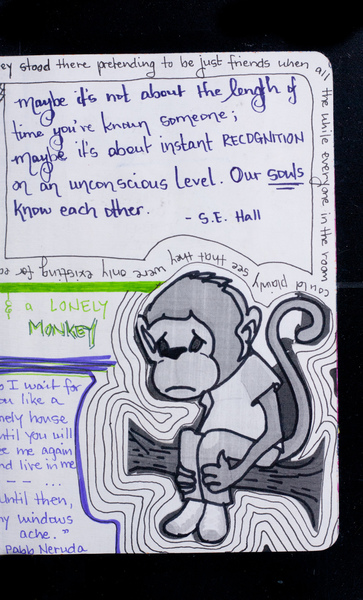 ey stood there pretending to be just friends when all
the while everyone in the room
could plainly
see that they
were only existing for
maybe it's not about the length of
time you've known someone;
maybe it's about instant RECOGNITION
on an unconscious level. Our souls
know each other.
- S.E. Hall
a LONELY
MONKEY
o I wait for
ou like a
nely house
ntil you will
ee me again
nd live in me
-- ...
Until then,
my windows
ache."
Pablo Neruda